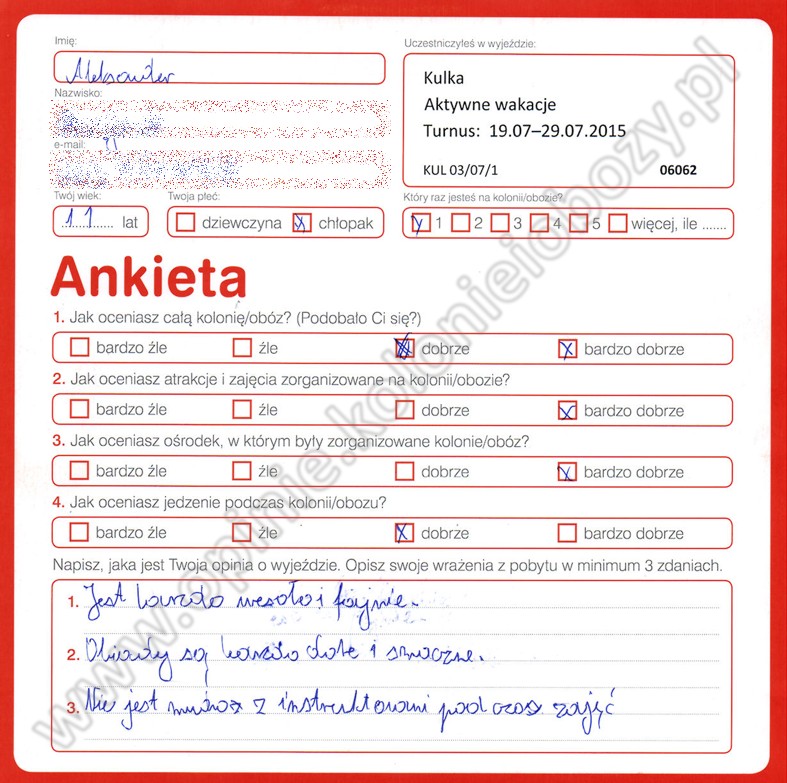 Imię:
Aleksander
Uczestniczyłeś w wyjeździe:
Kulka
Aktywne wakacje
Turnus: 19.07–29.07.2015
KUL 03/07/1 06062
Nazwisko:
e-mail:
Twój wiek:
11 lat
Twoja płeć:
dziewczyna x chłopak
Który raz jesteś na kolonii/obozie?
x 1 2 3 4 5 więcej, ile .......
Ankieta
1. Jak oceniasz całą kolonię/obóz? (Podobało Ci się?)
bardzo źle źle dobrze x bardzo dobrze
2. Jak oceniasz atrakcje i zajęcia zorganizowane na kolonii/obozie?
bardzo źle źle dobrze x bardzo dobrze
3. Jak oceniasz ośrodek, w którym były zorganizowane kolonie/obóz?
bardzo źle źle dobrze x bardzo dobrze
4. Jak oceniasz jedzenie podczas kolonii/obozu?
bardzo źle źle x dobrze bardzo dobrze
Napisz, jaka jest Twoja opinia o wyjeździe. Opisz swoje wrażenia z pobytu w minimum 3 zdaniach.
1. Jest bardzo wesoło i fajnie.
2. Obiady są bardzo i smaczne.
3. Nie jest z podczas zajęć
www.opinie.kolonieiobozy.pl